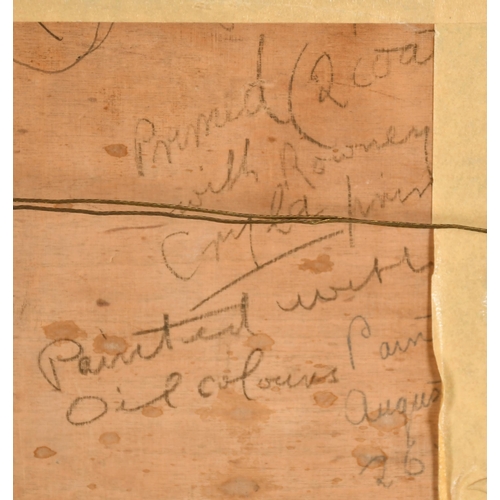 Primed (2 coat
with Rowney
Cryla prim
Painted with
Oil colours
Paint
August
26